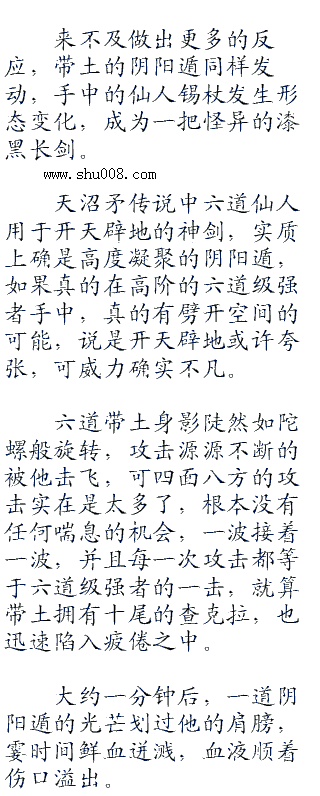 来不及做出更多的反
应，带土的阴阳遁同样发
动，手中的仙人锡杖发生形
态变化，成为一把怪异的漆
黑长剑。
www.shu008.com
天沼矛传说中六道仙人
用于开天辟地的神剑，实质
上确是高度凝聚的阴阳遁，
如果真的在高阶的六道级强
者手中，真的有劈开空间的
可能，说是开天辟地或许夸
张，可威力确实不凡。
六道带土身影陡然如陀
螺般旋转，攻击源源不断的
被他击飞，可四面八方的攻
击实在是太多了，根本没有
任何喘息的机会，一波接着
一波，并且每一次攻击都等
于六道级强者的一击，就算
带土拥有十尾的查克拉，也
迅速陷入疲倦之中。
大约一分钟后，一道阴
阳遁的光芒划过他的肩膀，
霎时间鲜血迸溅，血液顺着
伤口溢出。